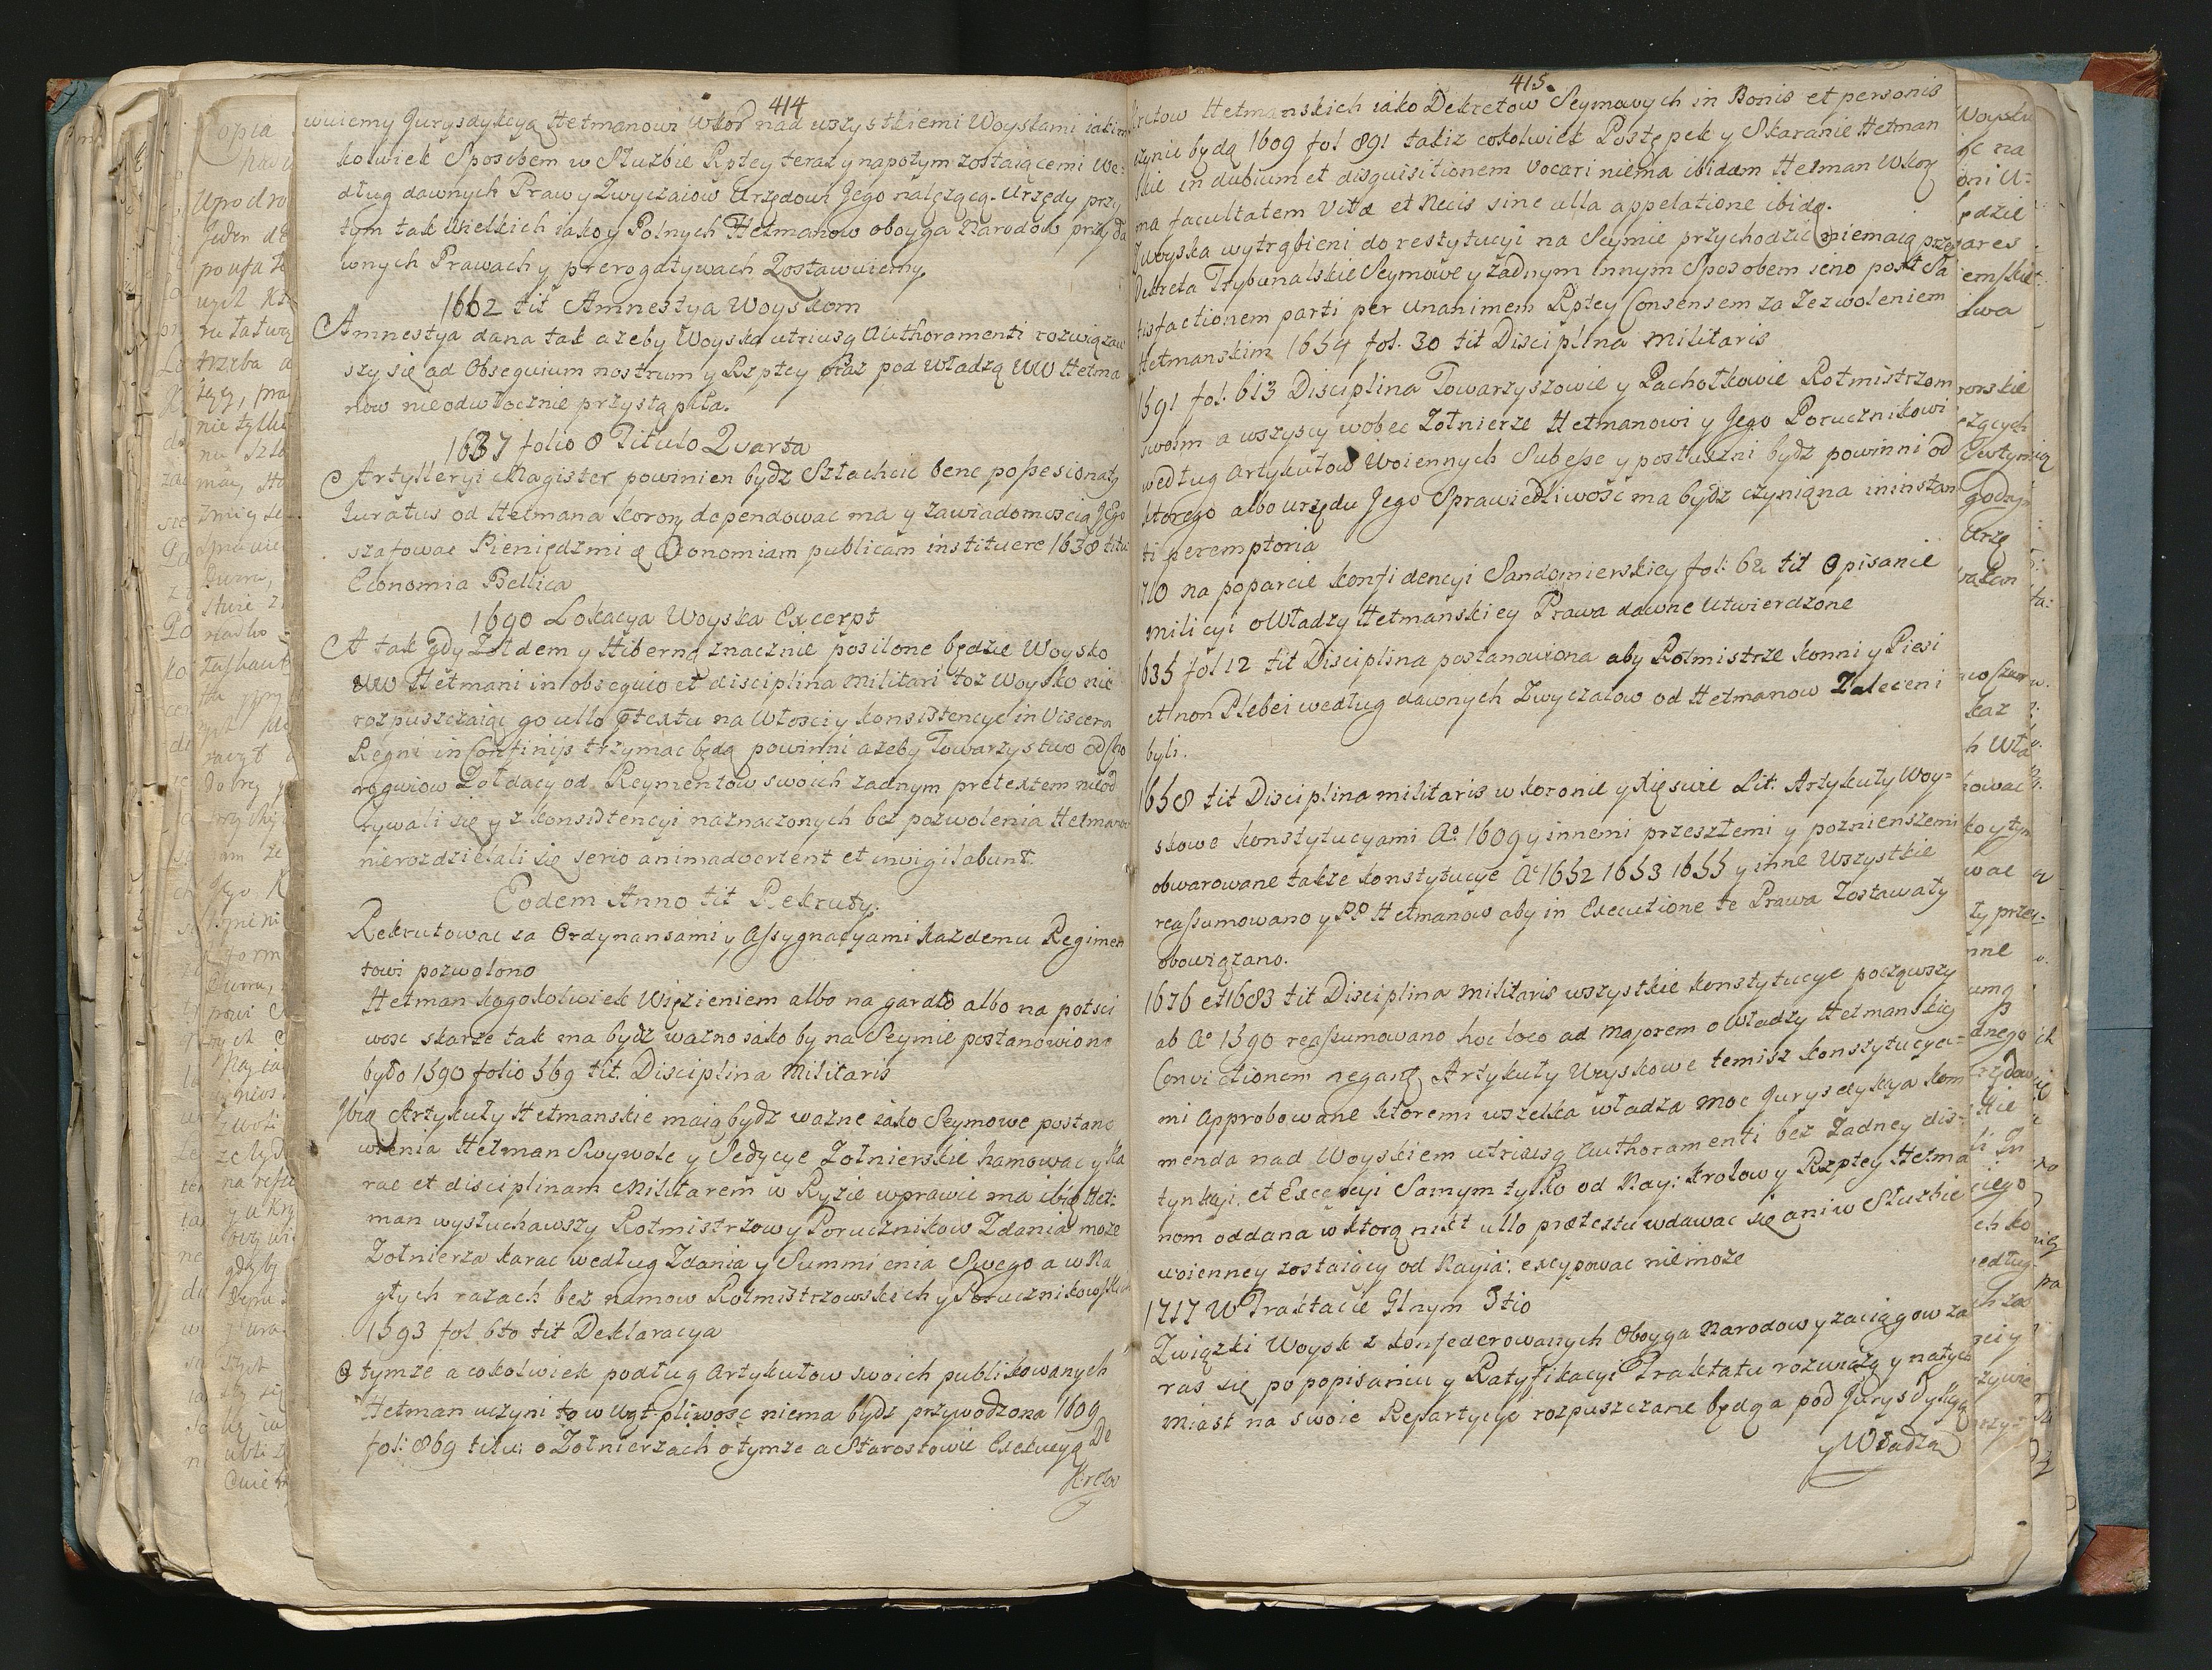 414
wuiemy Jurysdykcyą Hetmanowi WKor nad wszystkiemi Woyskami iakim
kolwiek Sposobem w Służbie Rptey teraz y napotym zostaiącemi We:
dług dawnych Praw y Zwyczaiow Urzędowi Jego należącą. Urzędy przy
tym tak Wielkich iako y Polnych Hetmanow oboyga Narodow przy da
wnych Prawach y prerogatywach Zostawuiemy.
1662 tit Amnestya Woyskom
Amnestya dana tak ażeby Woyska utriusq Authoramenti rozwiązaw
szy się ad Obsequium nostrum y Rzptey oraz pod Władzą WW Hetma
now nieodwłocznie przystąpiła.
1637 folio 8 Titulo Quarta
Artylleryi Magister powinien bydz Szlachcic bene possesionaty
Juratus od Hetmana Koron dependowac ma y zawiadomoscią Jego
szafowac Pieniędzmi & Œconomiam publicam instituere 1638 titu
Economia Bellica
1690 Lokacya Woyska Excerpt
A tak gdy Żołdem y Hiberną znacznie posilone będzie Woysko
WW Hetmani in obsequio et disciplina militari toz Woysko nie
rozpuszczaiąc go ullo ptextu na Włości y konsistencye in Viscera
Regni in Confinijs trzymac będą powinni ażeby Towarzystwo od Cho
rągwiow Żołdacy od Reymentow swoich żadnym pretextem nieod
rywali się y z konsistencyi naznaczonych bez pozwolenia Hetmanow
nierozdzielali się serio animadvertent et invigilabunt.
Eodem Anno tit Rekruty.
Rekrutowac za Ordynansami y Assygnacyami każdemu Regimen
towi pozwolono
Hetman kogokolwiek Więzieniem albo na gardło albo na poćsci
wosc skarze tak ma bydz ważno iako by na Seymie postanowiono
było 1590 folio 569 tit. Disciplina Militaris
Ibid Artykuły Hetmanskie maią bydz ważne iako Seymowe postano
wienia Hetman Swywole y Sedycye Żołnierskie hamowac y Ka
rac et disciplinam Militarem w Ryzie wprawie ma ibid Het:
man wysłuchawszy Rotmistrzow y Porucznikow Zdania może
Żołnierza karac według Zdania y Summienia Swego a w Na
głych razach bez namow Rotmistrzowskich y Porucznikowskich
1593 fol 610 tit Deklaracya
O tymze a cokolwiek podług Artykułow swoich publikowanych
Hetman uczyni to w Wątpliwosc niema bydz przywodzona 1609
fol: 869 titu: o Żołnierzach o tymże a Starostowie Exekucyą De
kretow
415.
kretow Hetmanskich iako Dekretow Seymowych in Bonis et personis
czynic będą 1609 fol 891 takiz cokolwiek Postępek y Skaranie Hetman
skie in dubium et disquisitionem Vocari niema ibidem Hetman WKor
ma facultatem Vitæ et Necis sine ulla appelatione ibid.
Z woyska wytrąbieni do restytucyi na Seymie przychodzic niemaią przez
Dekreta Trybunalskie Seymowe y żadnym innym Sposobem seno post Sa
tisfactionem parti per Unanimem Rptey Consensem za Zezwoleniem
Hetmanskim 1654 fol. 30 tit Disciplina Militaris
1591 fol. 613 Disciplina Towarzyszowie y Pachołkowie Rotmistrzom
swoim a wszyscy wobec Żołnierze Hetmanowi y Jego Porucznikowi
według Artykułow Woiennych Subesse y posłuszni bydz powinni od
ktorego albo urzędu Jego Sprawiedliwosc ma bydz czyniąna in instan
ti peremptoria
710 na poparcie Konfidencyi Sandomierskiey fol: 62 tit Opisanie
Milicyi o Władzy Hetmanskiey Prawa dawne Utwierdzone
635 fol 12 tit Disciplina postanowiona aby Rotmistrze konni y Piesi
et non Plebei według dawnych Zwyczaiow od Hetmanow Zaleceni
byli.
1658 tit Disciplina militaris w koronie y Xięswie Lit: Artykuły Woy=
skowe konstytucyami Aº 1609 y innemi przeszłemi y poznieyszemi
obwarowane także konstytucye Aº 1652 1653 1655 y inne Wszystkie
reassumowano y PP Hetmanow aby in Executione te Prawa Zostawały
obowiązano.
1676 et 1683 tit Disciplina Militaris wszystkie konstytucye począwszy
ab Aº 1590 reassumowano hoc loco ad Majorem o Władzy Hetmanskiey
Convictionem negant Artykuły Woyskowe temisz konstytucya=
mi Approbowane ktoremi wszelka władza moc Jurysdykcya kom
menda nad Woyskiem utriusq Authoramenti bez Żadney dis=
tynkcyi. et Excepcyi Samym tylko od Nay: Krolow y Rzptey Hetma
nom oddana w ktorą nikt ullo prætextu wdawac się ani w Służbie
woienney zostaiący od Nayia: excypowac niemoże
1717 W Traktacie Glnym 3tio
Związki Woysk skonfederowanych Oboyga Narodow y zaciągow za
raz się po popisaniu y Ratyfikacyi Traktatu rozwiążą y natych
miast na swoie Repartycye rozpuszczane będą a pod Jurysdykcyą
y Władzą